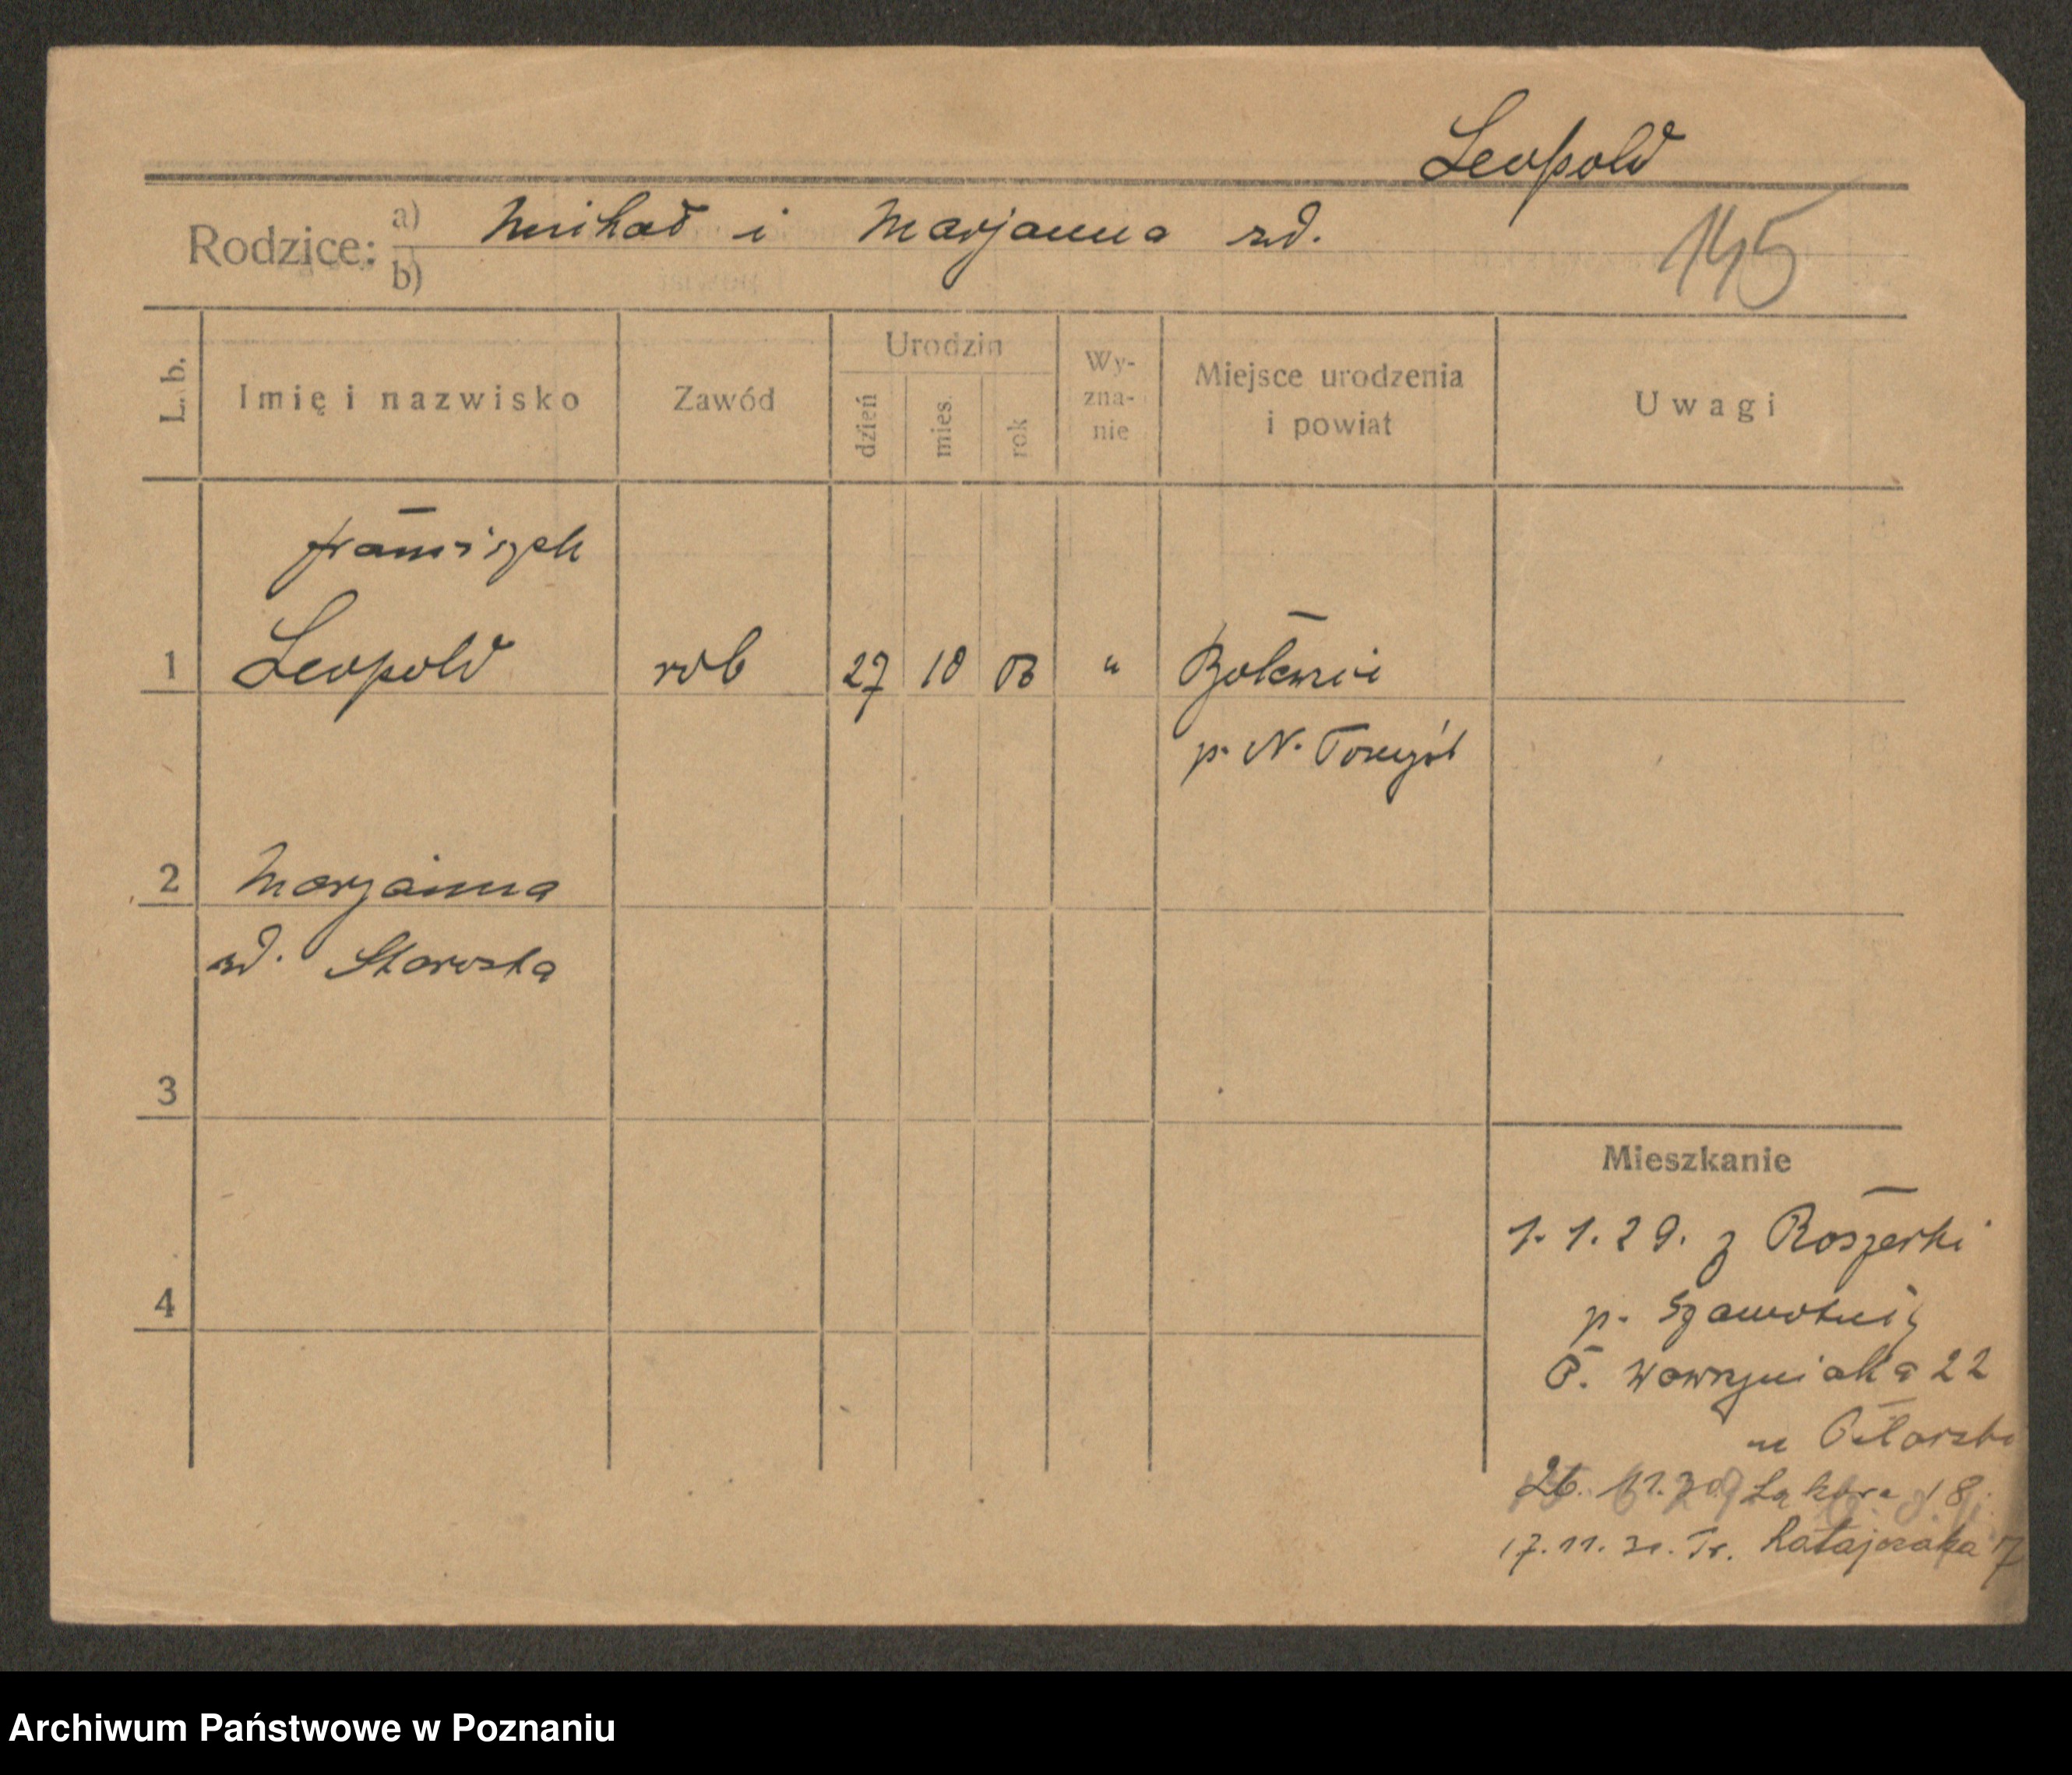 Leopold
Rodzice: a) Michał i Marjanna zd.
b)
145
L. b.
Imię i nazwisko
Zawód
Urodzin
dzień
mies.
rok
Wy-
zna-
nie
Miejsce urodzenia
i powiat
Uwagi
Franciszek
1 Leopold rob 27 10 03 "
p. N. Tomyśl
2 Marjanna
zd. Starosta
3
4
Mieszkanie
1.1.29. z
p. Szamotuły
O. Wawrzyniaka 22
u
26. 11. 30 Łąkowa 18
17. 11. 30. Tr. Ratajczaka 7
Archiwum Państwowe w Poznaniu